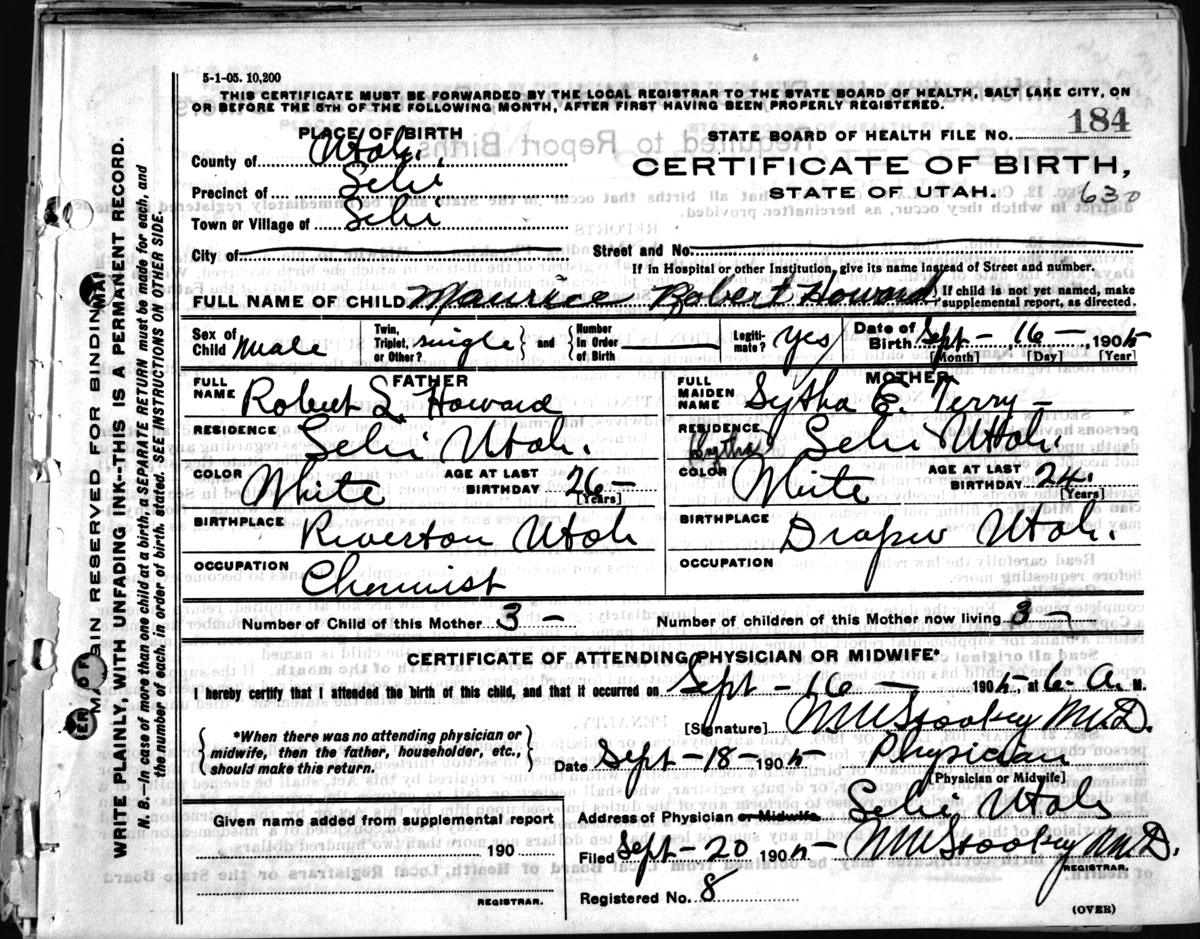 5-1-05. 10,200
THIS CERTIFICATE MUST BE FORWARDED BY THE LOCAL REGISTRAR TO THE STATE BOARD OF HEALTH, SALT LAKE CITY, ON
OR BEFORE THE 5TH OF THE FOLLOWING MONTH, AFTER FIRST HAVING BEEN PROPERLY REGISTERED.
PLACE OF BIRTH
STATE BOARD OF HEALTH FILE NO. 184
County of Utah.
CERTIFICATE OF BIRTH,
Precinct of Lehi
STATE OF UTAH. 630
Town or Village of Lehi
City of
Street and No.
If in Hospital or other Institution, give its name instead of Street and number.
FULL NAME OF CHILD Maurice Robert Howard { If child is not yet named, make supplemental report, as directed.
Sex of Child Male
Twin, Triplet, or Other? single } and { Number in Order of Birth —
Legitimate? yes
Date of Birth Sept - 16 - 1905
[Month] [Day] [Year]
FATHER
FULL NAME Robert L. Howard
RESIDENCE Lehi Utah.
COLOR White AGE AT LAST BIRTHDAY 26 - [Years]
BIRTHPLACE Riverton Utah
OCCUPATION Chemist
MOTHER
FULL MAIDEN NAME Sytha E. Terry -
RESIDENCE Lehi Utah.
Sytha
COLOR White AGE AT LAST BIRTHDAY 24. [Years]
BIRTHPLACE Draper Utah.
OCCUPATION
Number of Child of this Mother 3 -
Number of children of this Mother now living 3 -
CERTIFICATE OF ATTENDING PHYSICIAN OR MIDWIFE*
I hereby certify that I attended the birth of this child, and that it occurred on Sept - 16 - 1905, at 6- A. M.
{ *When there was no attending physician or midwife, then the father, householder, etc., should make this return. }
[Signature] Stookey M.D.
Date Sept - 18 - 1905 Physician
[Physician or Midwife]
Given name added from supplemental report
190
REGISTRAR.
Address of Physician or Midwife Lehi Utah
Filed Sept - 20 1905 Stookey M.D.
REGISTRAR.
Registered No. 8
(OVER)
MARGIN RESERVED FOR BINDING
WRITE PLAINLY, WITH UNFADING INK--THIS IS A PERMANENT RECORD.
N. B.—In case of more than one child at a birth, a SEPARATE RETURN must be made for each, and
the number of each, in order of birth, stated. SEE INSTRUCTIONS ON OTHER SIDE.